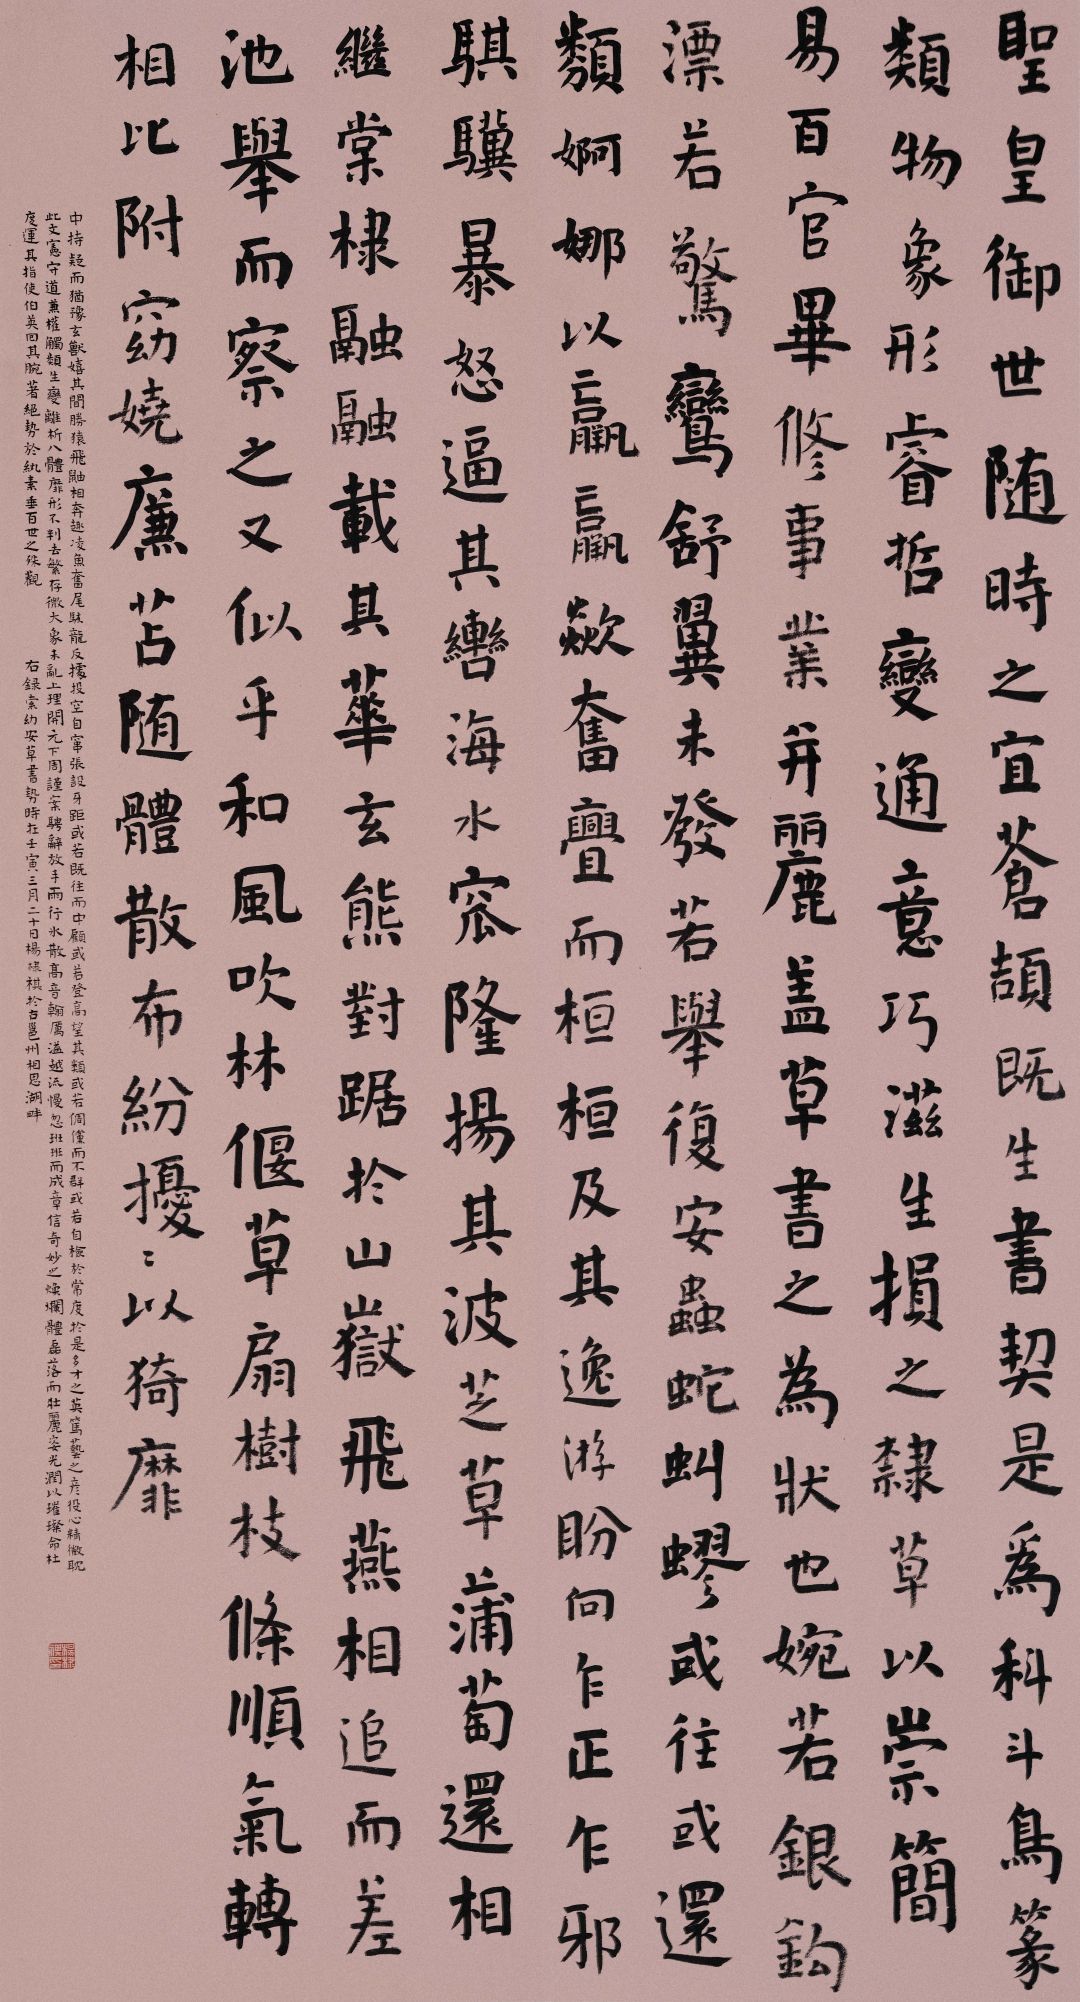 聖皇御世随時之宜蒼頡既生書契是爲科斗鳥篆
類物象形睿哲變通意巧滋生損之隸草以崇簡
易百官畢修事業并麗盖草書之為狀也婉若銀鈎
漂若驚鸞舒翼未發若舉復安蟲蛇虯蟉或往或還
類婀娜以羸羸歘奮亹而桓桓及其逸游盼向乍正乍邪
騏驥暴怒逼其轡海水窊隆揚其波芝草蒲萄還相
繼棠棣融融載其華玄熊對踞於山嶽飛燕相追而差
池舉而察之又似乎和風吹林偃草扇樹枝條順氣轉
相比附窈嬈廉苫随體散布紛擾〻以猗靡
中持疑而猶豫玄獸嬉其間勝猿飛鼬相奔趣凌魚奮尾駭龍反據投空自竄張設牙距或若既往而中顧或若登高望其類或若倜儻而不群或若自檢於常度於是多才之英篤藝之彦役心精微耽
此文憲守道兼權觸類生變離析八體靡形不判去繁存微大象未亂上理開元下周謹案騁辭放手雨行冰散高音翰厲溢越流慢忽班班而成章信奇妙之煥爛體磊落而壯麗姿光潤以璀璨命杜
度運其指使伯英回其腕著絕勢於紈素垂百世之殊觀 右録索幼安草書勢時在壬寅三月二十日楊祺於古邕州相思湖畔